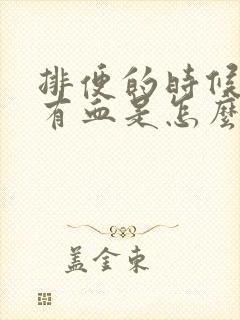 排便的時候
有血是怎麼
盖金東